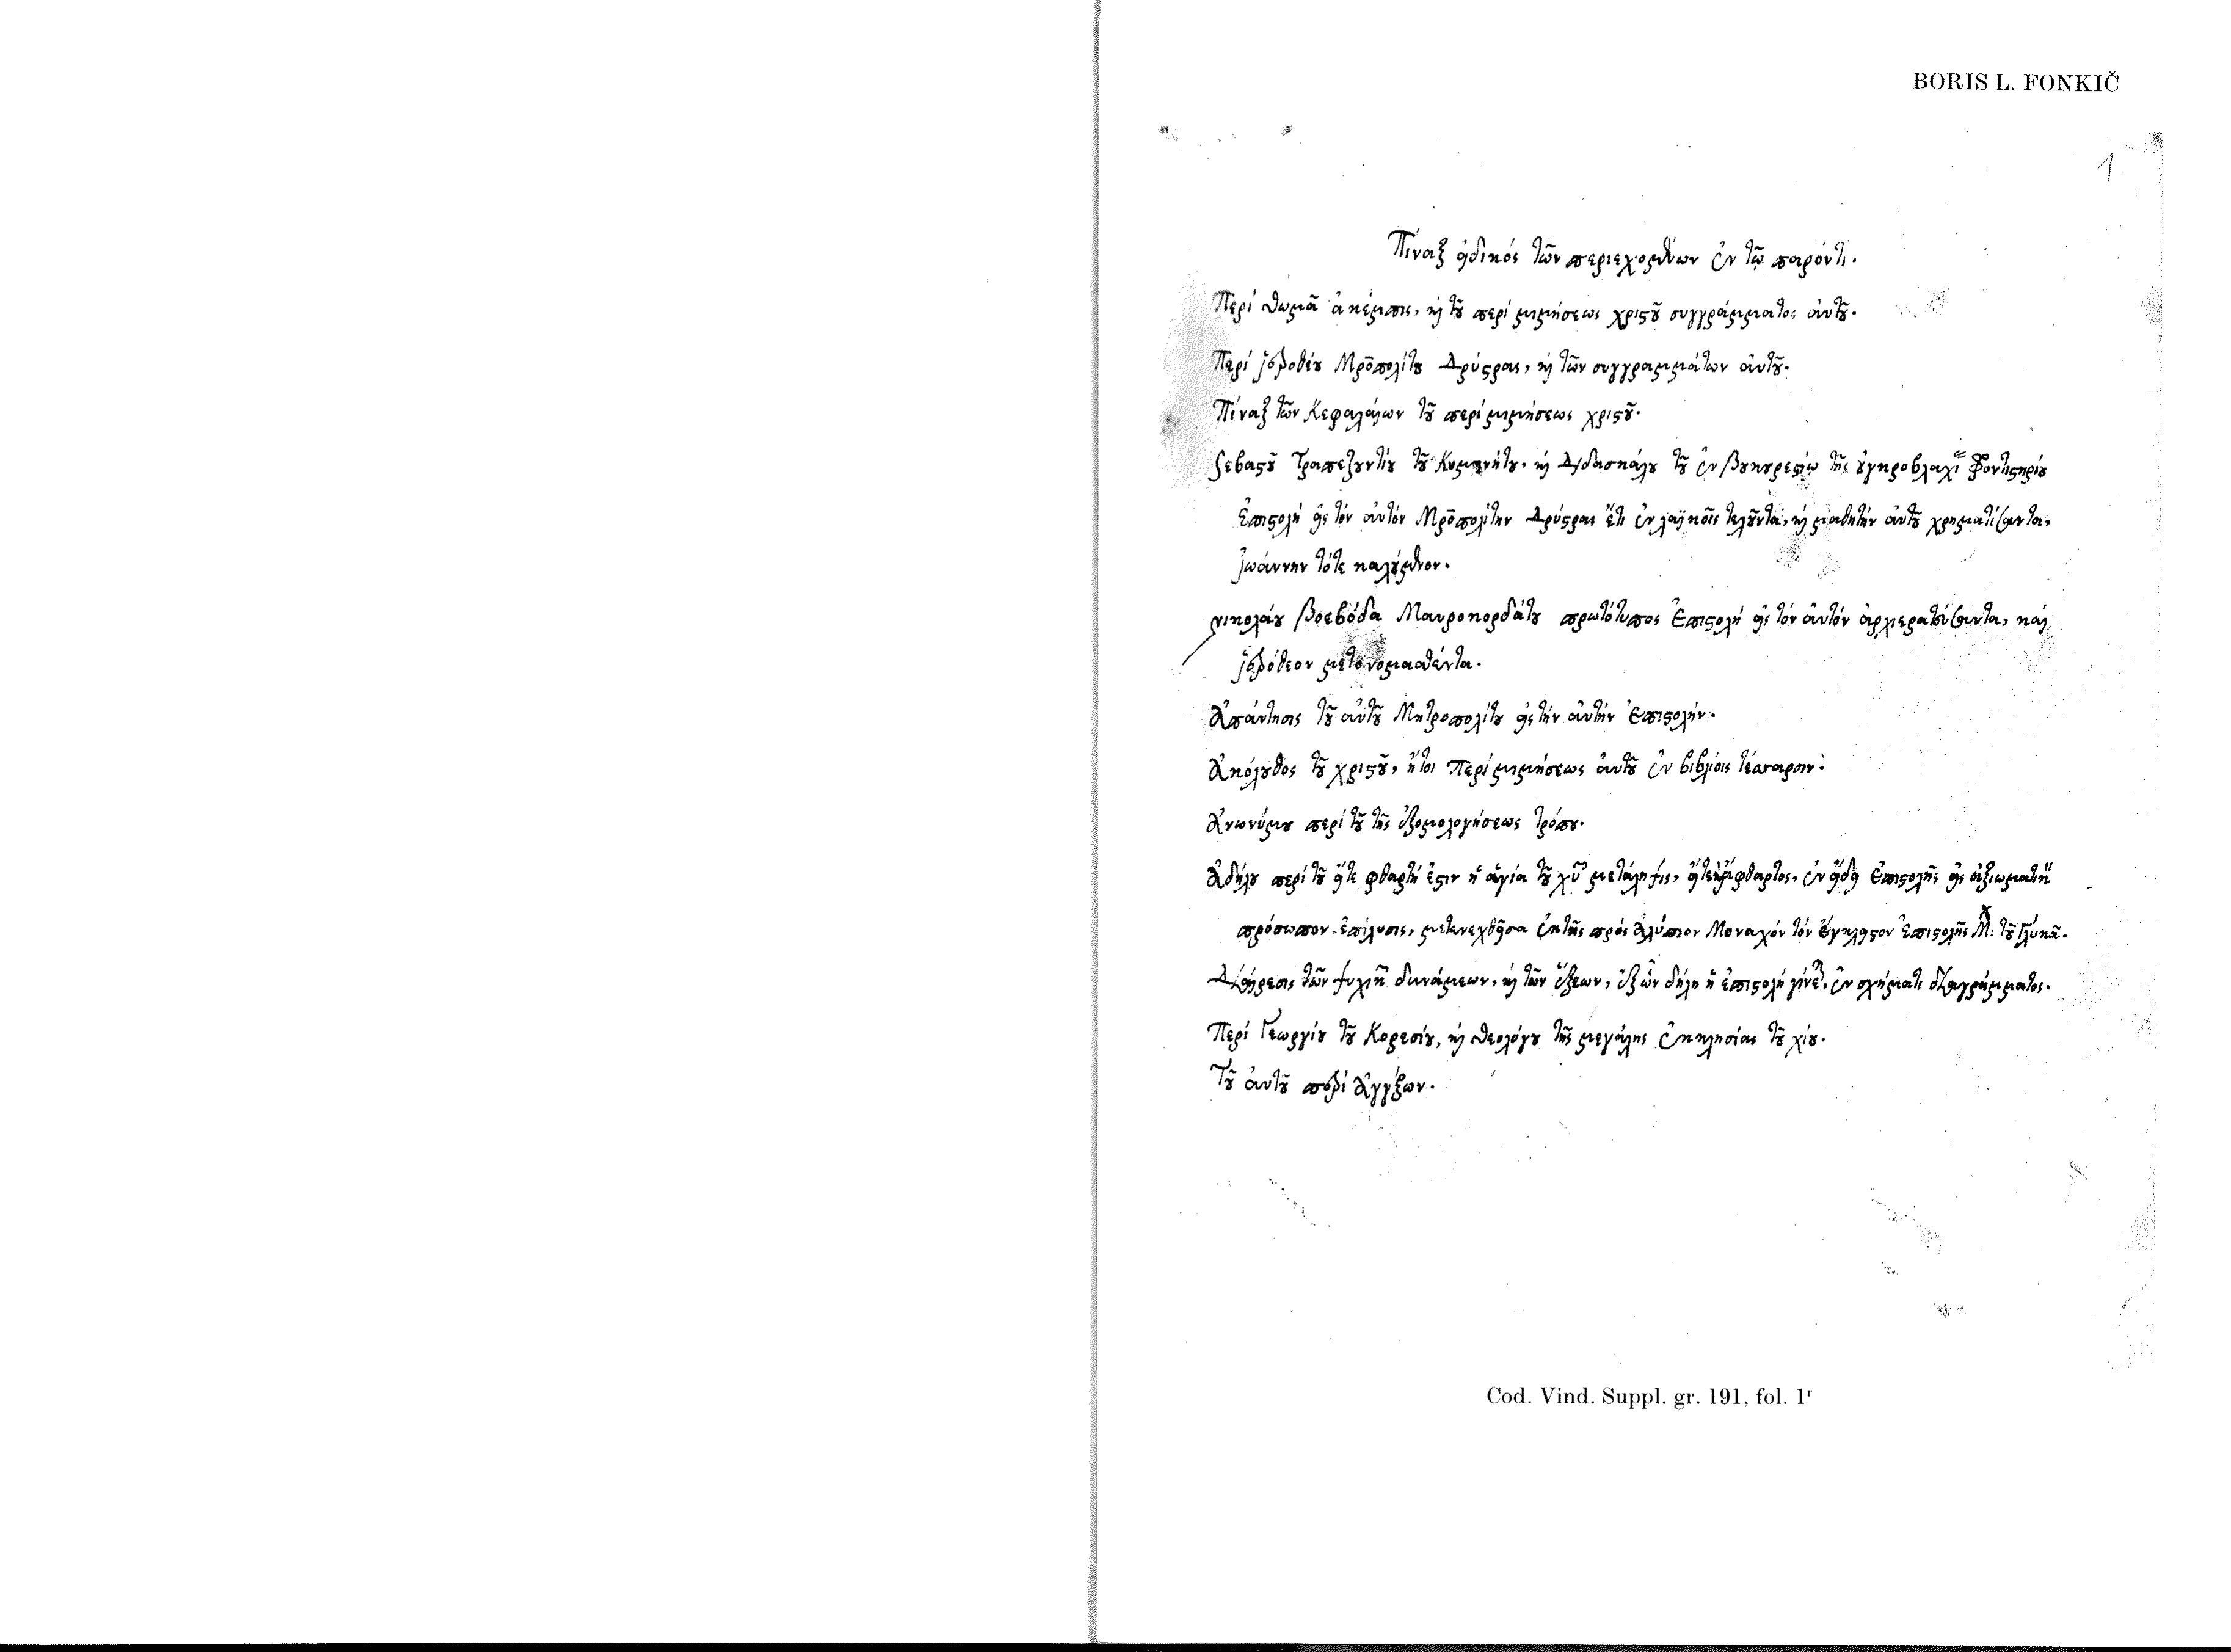 BORIS L. FONKIČ
1
Πίναξ εἰδικός τῶν περιεχομένων ἐν τῷ παρόντι.
Περί θωμᾶ ἀκέμπις, καὶ τοῦ περί μιμήσεως χριστοῦ συγγράμματος ἀυτοῦ.
Περί ἱεροθέου Μροπολίτου Δρύστρας, καὶ τῶν συγγραμμάτων ἀυτοῦ.
Πίναξ τῶν Κεφαλάιων τοῦ περί μιμήσεως χριστοῦ.
Σεβαστοῦ Τραπεζουντίου τοῦ Κυμηνήτου. καὶ Διδασκάλου τοῦ ἐν βουκουρεστίῳ τῆς ὀυγκροβλαχί Φροντιστηρίου
Ἐπιστολή εἰς τόν ἀυτόν Μροπολίτην Δρύστρας ἔτι ἐν λαϊκοῖς τελοῦντα, καὶ μαθητήν ἀυτοῦ χρηματίσαντα,
Ἰωάννην τότε καλούμενον.
νικολάου βοεβόδα Μαυροκορδάτου πρωτότυπος Ἐπιστολή εἰς τόν ἀυτόν ἀρχιερατέυσαντα, κάι
ἱερόθεον μετονομασθέντα.
Ἀπάντησις τοῦ ἀυτοῦ Μητροπολίτου εἰς τήν ἀυτήν Ἐπιστολήν.
Ἀκόλουθος τοῦ χριστοῦ, ἤτοι Περί μιμήσεως ἀυτοῦ ἐν βιβλίοις τέσσαρσιν.
Ἀνωνύμου περί τοῦ τῆς ἐξομολογήσεως τρόπου.
Ἀδήλου περί τοῦ εἴτε φθαρτή ἐστιν ἡ ἁγία τοῦ χυ μετάληψις, εἴτε ἄφθαρτος, ἐν εἴδει Ἐπιστολῆς εἰς ἀξιωματι
πρόσωπον ἐπίλυσις, μετενεχθεῖσα ἐκ τῆς πρός Ἀλύπιον Μοναχόν τόν Ἔγκλειστον Ἐπιστολῆς Μ: τοῦ Γλυκᾶ.
Διάιρεσις τῶν ψυχι δυνάμεων, καὶ τῶν ἕξεων, ἐξ ὧν δήλη ἡ ἐπιστολή γίνε, ἐν σχήματι διαγράμματος.
Περί Γεωργίου τοῦ Κορεσίου, καὶ θεολόγου τῆς μεγάλης ἐκκλησίας τοῦ χίου.
Τοῦ ἀυτοῦ περί Ἀγγέλων.
Cod. Vind. Suppl. gr. 191, fol. 1r